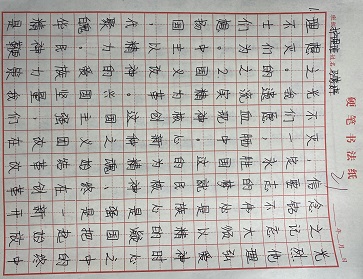 硬笔书法纸
21 年 月 日
1.理想之光不灭,信念之光
不灭。我们一定要铭记烈
士们的遗愿,永志不忘他
们为之流血牺牲的伟大理
想。2.实现中国梦必须弘
扬中国精神。这就是以爱
国主义为核心的民族精神
,以改革创新为核心的时
代精神。这种精神是凝心
聚力的兴国之魂、强国之
魄。爱国主义始终是把中
华民族坚强团结在一起的
精神力量,改革创新始终
是鞭策我们在改革开放中